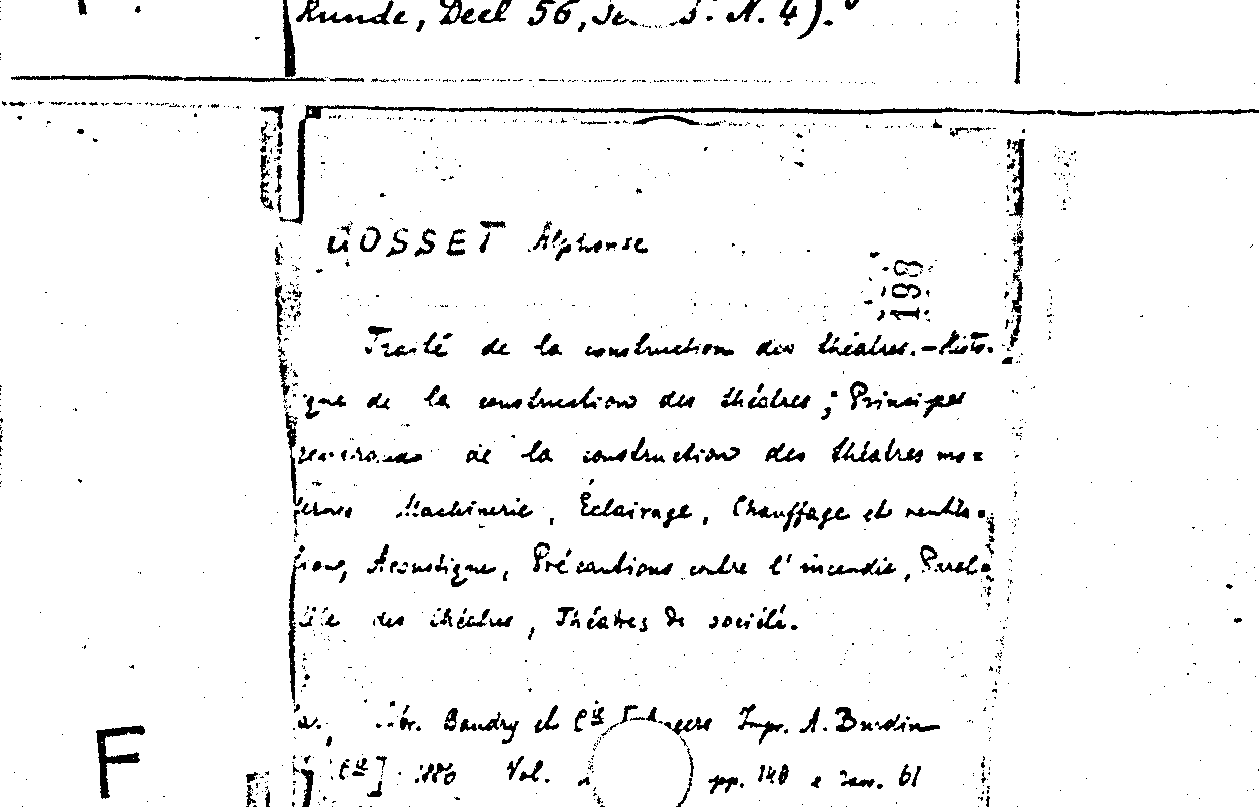 Runde, Deel 56, N. 4).
GOSSET Alphonse
198
Traité de la construction des théatres. - Histo-
que de la construction des théatres ; Principes
de la construction des théatres mo=
Machinerie, Éclairage, Chauffage et
Acoustique, Précautions contre l'incendie,
des théatres, Théatres de société.
Baudry et Cie Impr. A. Burdin
[Cie] 1886 Vol. pp. 140 e 61
F